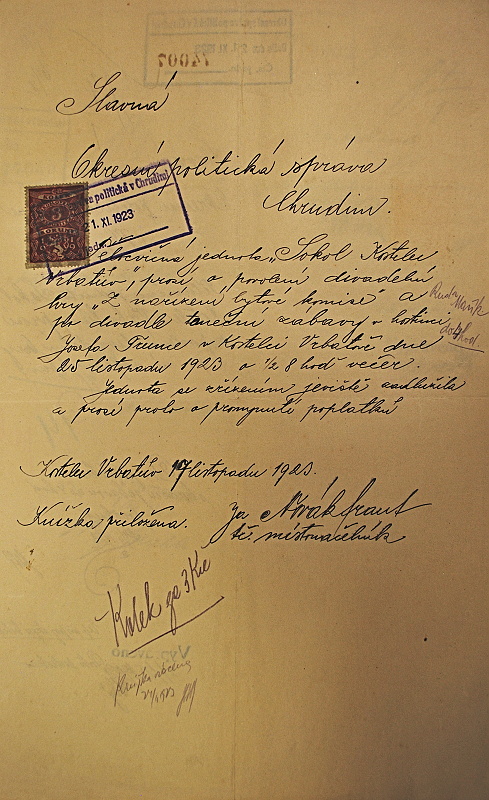 14007
Slavná
Okresní politická správa
Chrudim.
politická v Chrudimi
21. XI. 1923
3
Tělocvičná jednota „Sokol Kostelec
Vrbatův", prosí o povolení divadelní
hry „Z nařízení bytové komise" a
po divadle taneční zábavy v hostinci
do 4 hod.
Josefa Trunce v Kostelci Vrbatově dne
25 listopadu 1923 o ½ 8 hod večer.
Jednota se zřízením jeviště zadlužila
a prosí proto o prominutí poplatků
Kostelec Vrbatův 17 listopadu 1923.
Knížka přiložena. Za Novák Frant
tč. místonáčelník
Kolek za 3 Kč
Knížka